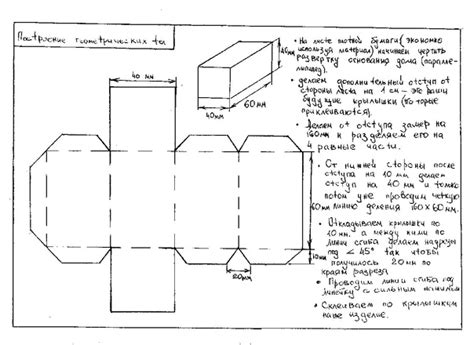 Построение геометрических тел
40 мм
45мм
40мм
60мм
• на листе плотной бумаги (экономно
используя материал) начинаем чертить
развертку основания дома (паралле-
пипед).
• делаем дополнительный отступ от
стороны листа на 1 см – это наши
будущие крылышки (которые
приклеиваются).
• Делаем от отступа замер на
160мм и разделяем его на
4 равные части.
• От нижней стороны после
отступа на 10 мм делаем
отступ на 40 мм и только
потом уже проводим четкую
линию деления 160х60мм.
60мм
• Откладываем крылышки по
10мм, а между ними по
линии сгиба делаем надрезы
под < 45° так чтобы
получилось 20мм по
краям разреза
10мм
20мм
• Проводим линии сгиба под
линейку с сильным нажимом
• Склеиваем по крылышкам
наше изделие.